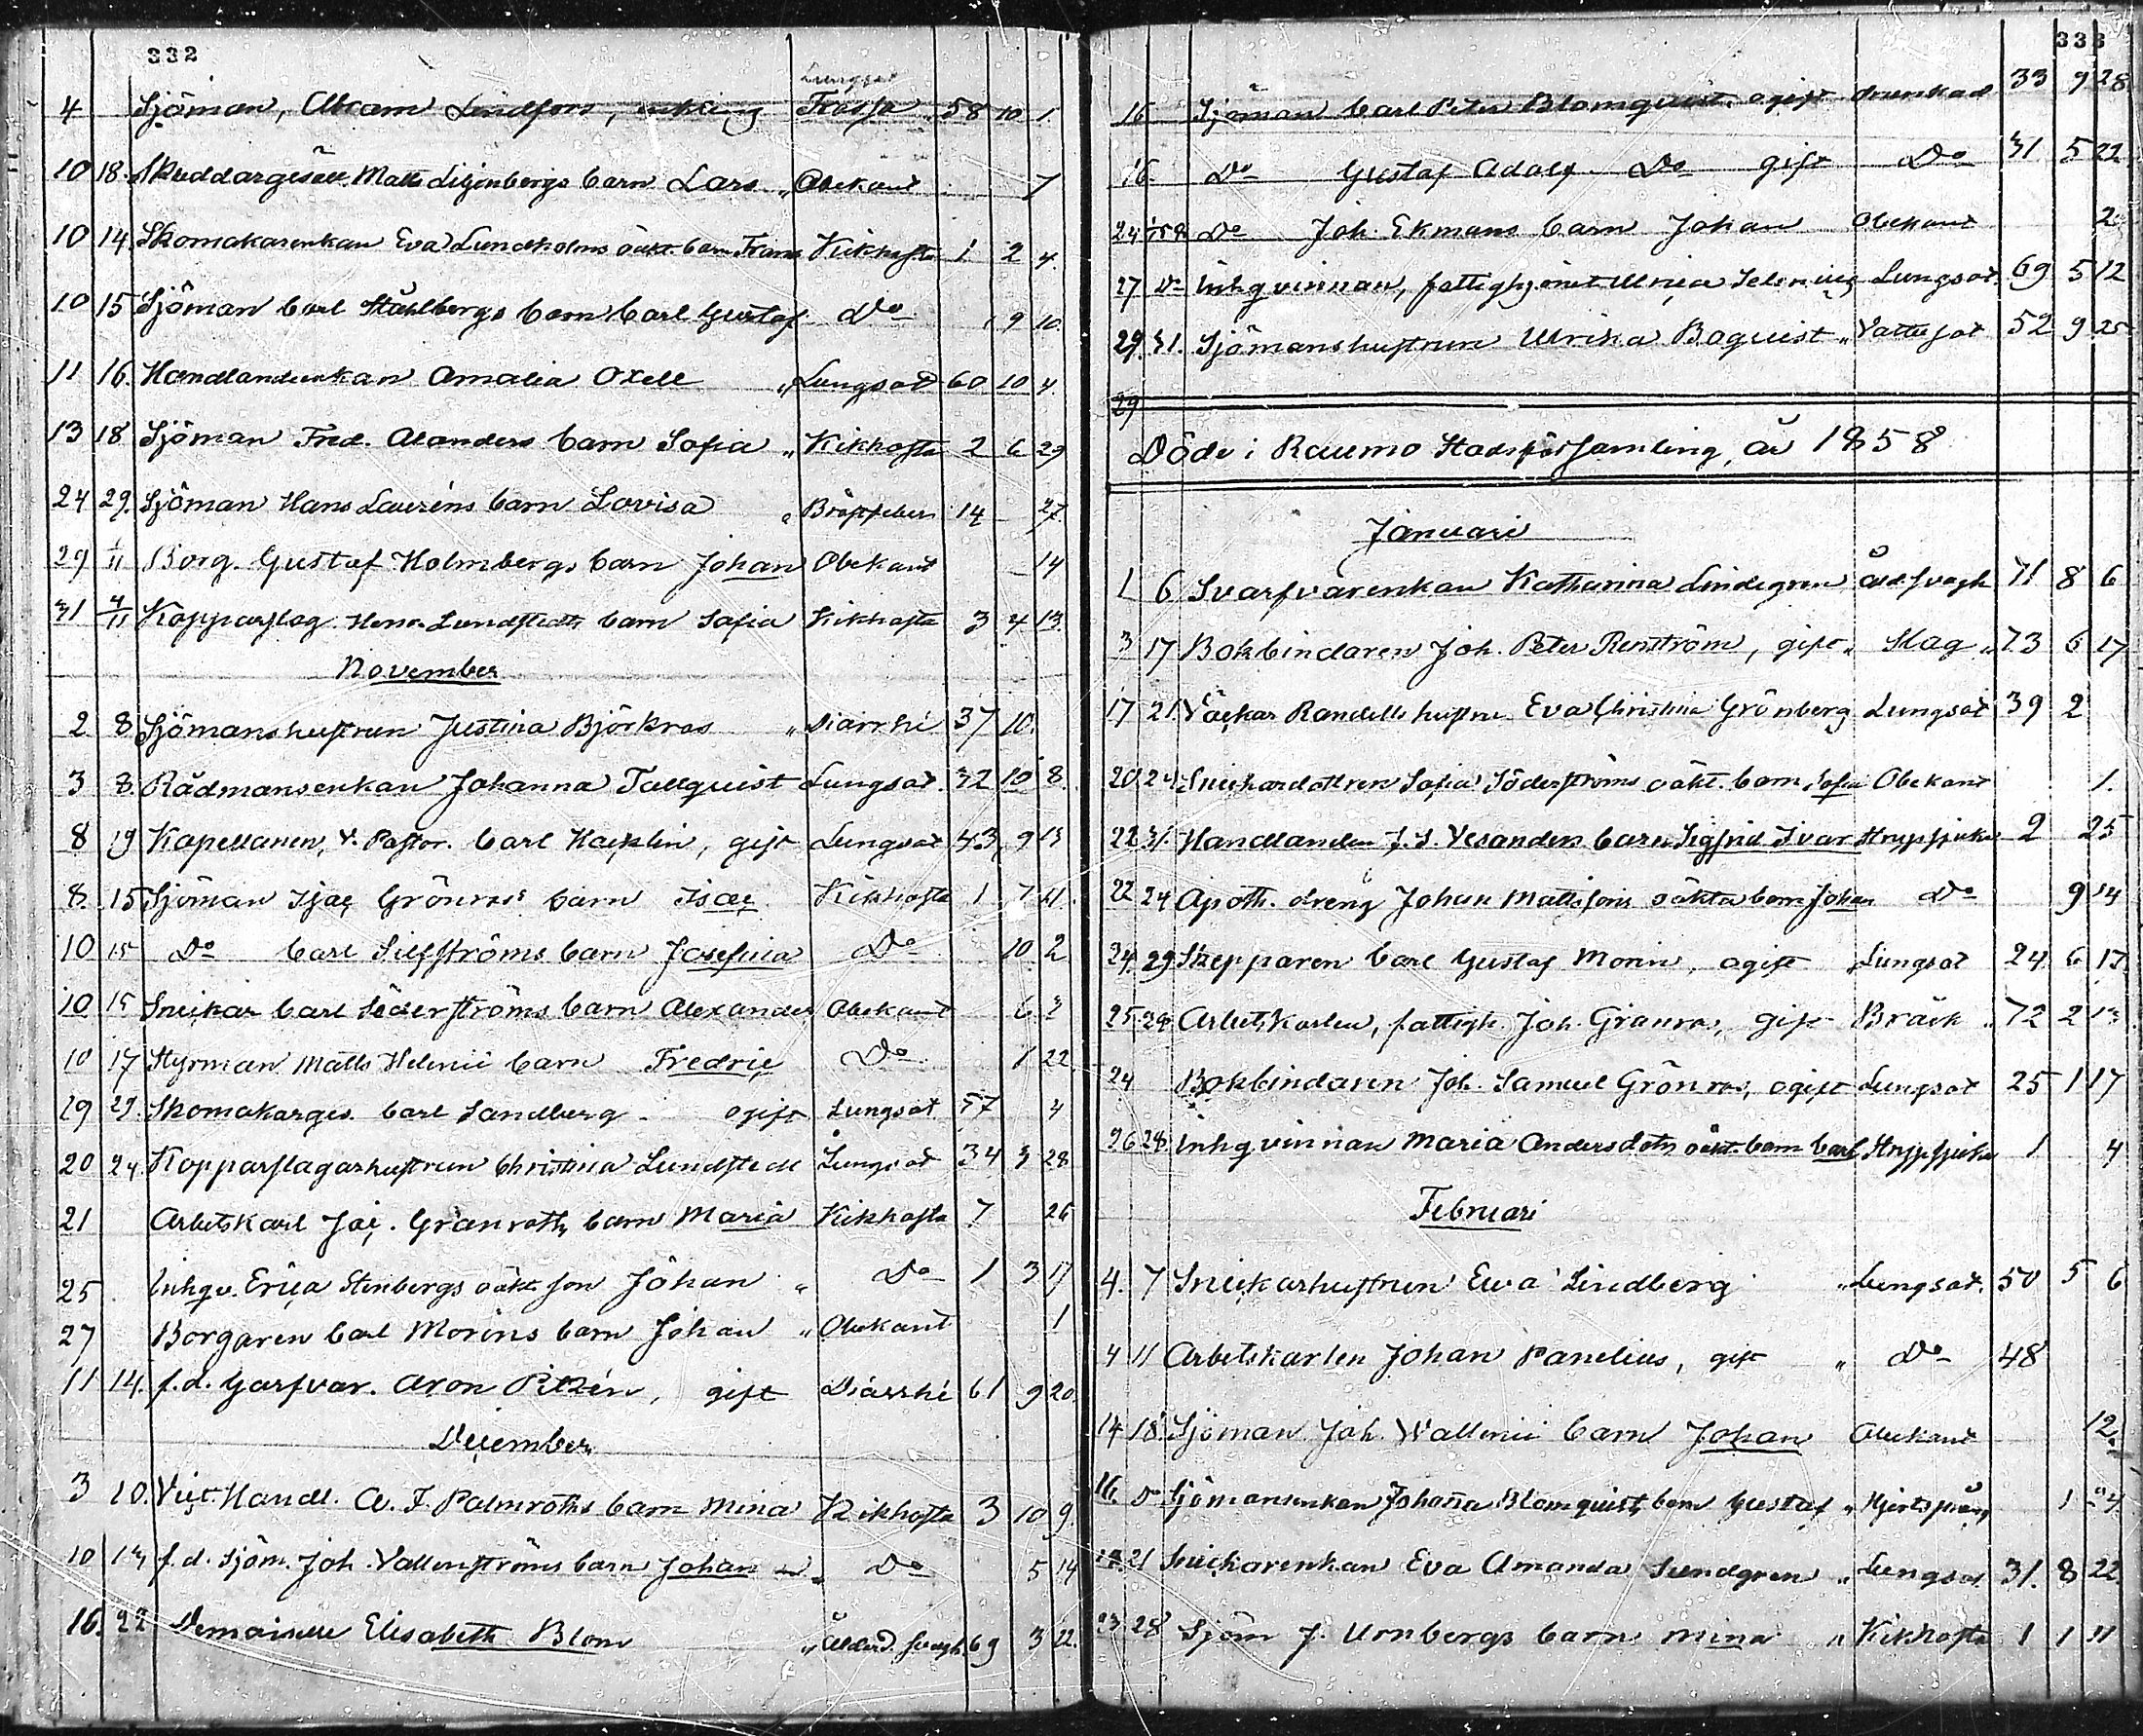 332
Lungsot
4 Sjöman, Abram Lindfors, enkling Frossa 58 10 1
10 18 Skräddargesäll. Matts Liljenbergs barn Lars „ Obekant 7
10 14 Skomakarenkan Eva Lundholms oäkt. barn Frans Kikhosta 1 2 4
10 15 Sjöman Carl Ståhlbergs barn Carl Gustaf Do 9 10
11 16 Handlandeenkan Amalia Oxell „ Lungsot 60 10 4
13 18 Sjöman Fred. Alanders barn Sofia „ Kikhosta 2 6 29
24 29 Sjöman Hans Lauréns barn Lovisa „ 14 – 27
29 1/11 Borg. Gustaf Holmbergs barn Johan Obekant 14
31 4/11 Kopparslag. Henr. Lundstedts barn Sofia Kikhosta 3 4 13
November
2 8 Sjömanshustrun Justina Björkros „ Diarrhé 37 10
3 8 Rådmansenkan Johanna Tallquist Lungsot 32 10 8
8 19 Kapellanen, V. Pastor. Carl Hacklin, gift Lungsot 43 9 13
8 15 Sjöman Isac Grönros' barn Isac Kikhosta 1 7 21
10 15 Do Carl Silfströms barn Josefina Do 10 2
10 15 Snickar Carl Söderströms barn Alexander Obekant 6 3
10 17 Styrman Matts Helenii barn Fredric Do 1 22
29 29 Skomakarges. Carl Sandberg – ogift Lungsot 57 4
20 24 Kopparslagarhustrun Christina Lundstedt Lungsot 34 3 28
21 Arbetskarl Jac. Granroths barn Maria Kikhosta 7 26
25 Inhqv. Erica Stenbergs oäkt son Johan „ Do 1 3 17
27 Borgaren Carl Morins barn Johan „ Obekant 1
11 14 f.d. Garfvar. Aron Pitzén, gift Diarrhé 61 9 20
December
3 10 Vict. Handl. A. F. Palmroths barn Mina Kikhosta 3 10 9
10 13 f.d. Sjöm. Joh. Vallenströms barn Johan „ Do 5 14
16 22 Demoiselle Elisabeth Blom „ Ålderd. svagh. 69 3 22
333
16 Sjöman Carl Peter Blomquist, ogift drunknad 33 9 28
16 Do Gustaf Adolf Do gift Do 31 5 22
24 Do Joh. Ekmans barn Johan Obekant 2
27 Do Inhqvinnan, fattighjonet Ulrica Selenius Lungsot 69 5 12
29 31 Sjömanshustrun Ulrika Boquist „ Vattusot 52 9 25
29
Döde i Raumo Stadsförsamling, år 1858
Januari
1 6 Svarfvarenkan Katharina Lindegren Åld.svagh 71 8 6
3 17 Bokbindaren Joh. Peter Renström, gift „ Slag „ 73 6 17
17 21 Randells hustru Eva Christina Grönberg Lungsot 39 2
20 24 Snickardottren Sofia Söderströms oäkt. barn Sofia Obekant 1
22 31 Handlanden J. S. Vesanders barn Sigfrid Ivar Strypsjuka 2 25
22 24 Apoth. dreng Johan Mattssons oäkta barn Johan Do 9 14
24 29 Skepparen Carl Gustaf Morin, ogift Lungsot 24 6 17
25 28 Arbetskarlen, fattigh. Joh. Granros, gift Bråck „ 72 2 13
24 Bokbindaren Joh. Samuel Grönros, ogift Lungsot 25 1 17
26 28 Inhqvinnan Maria Andersdotts oäkt. barn Carl Strypsjuka 1 4
Februari
4 7 Snickarhustrun Eva Lindberg „ Lungsot 50 5 6
4 11 Arbetskarlen Johan Panelius, gift „ Do 48
14 18 Sjöman Joh. Wallenii barn Johan Obekant 12
16 Do Sjömansenkan Johanna Blomquists barn Gustaf „ 1 24
18 21 Snickarenkan Eva Amanda Sundgren „ Lungsot 31 8 22
23 28 Sjöm J. Urnbergs barn Mina „ Kikhosta 1 1 11